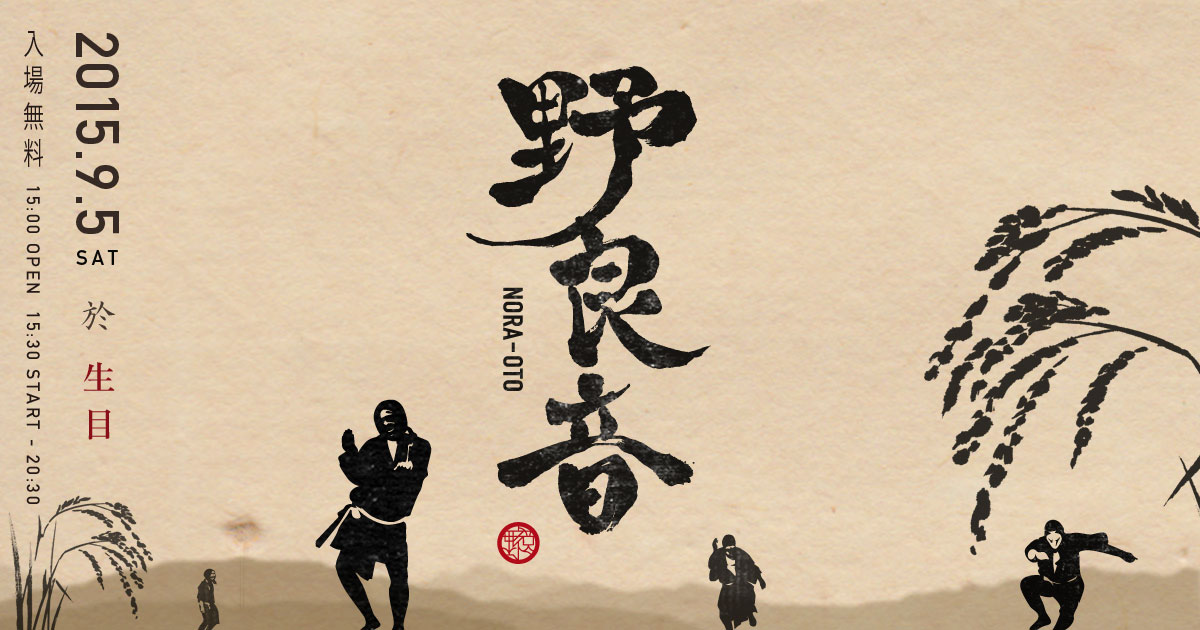 野良音
NORA-OTO
2015.9.5 SAT 於 生目
入場無料 15:00 OPEN 15:30 START - 20:30